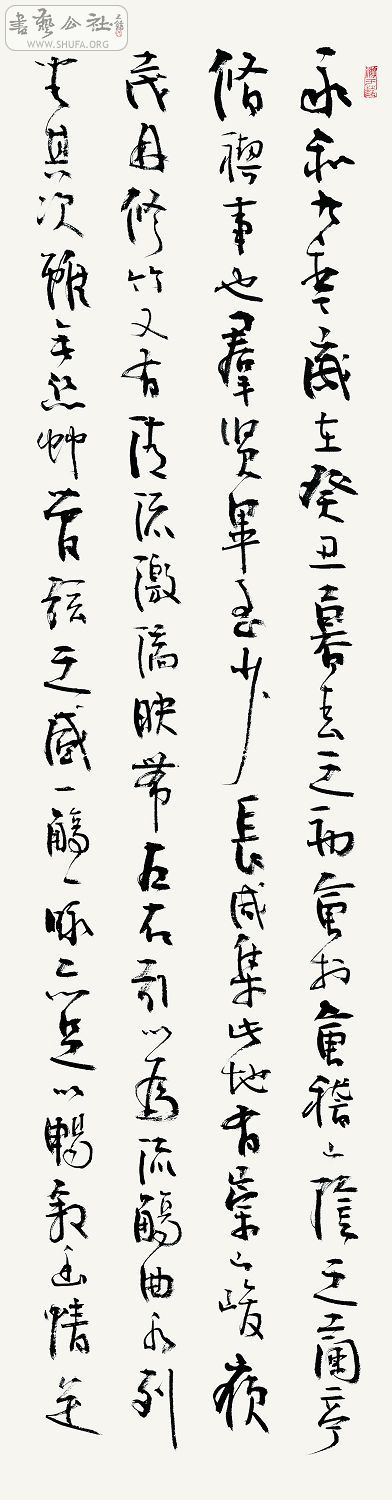 書藝公社
WWW.SHUFA.ORG
永和九年歲在癸丑暮春之初會於會稽山陰之蘭亭
脩禊事也羣賢畢至少長咸集此地有崇山峻嶺
茂林修竹又有清流激湍映帶左右引以為流觴曲水列
坐其次雖無絲竹管弦之盛一觴一詠亦足以暢敘幽情是